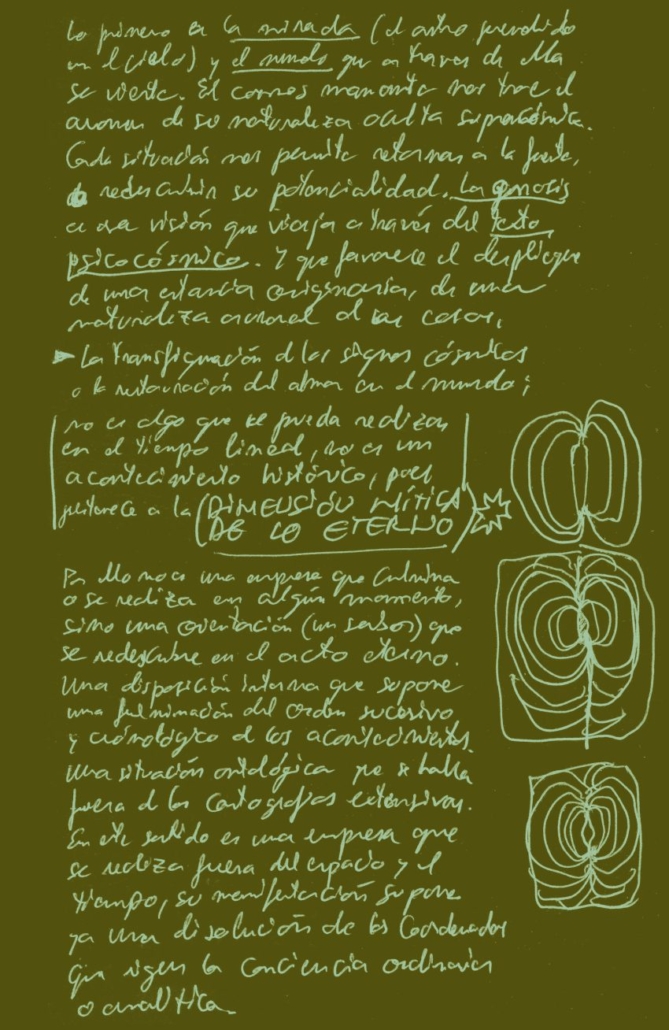 Lo primero es la mirada (el astro prendido
en el cielo) y el mundo que a traves de ella
se vierte. El cosmos manante nos trae el
aroma de su naturaleza oculta supracósmica.
Cada situación nos permite retornar a la fuente,
redescubrir su potencialidad. La gnosis
es una visión que viaja a través del texto
psicocósmico. Y que favorece el despliegue
de una estancia originaria, de una
naturaleza auroral de las cosas.
La transfiguración de los signos cósmicos
o la restauración del alma en el mundo;
no es algo que se pueda realizar
en el tiempo lineal, no es un
acontecimiento histórico, pues
pertenece a la (DIMENSIÓN MÍTICA
DE LO ETERNO)
Por ello no es una empresa que culmina
o se realiza en algún momento,
sino una orientación (un sabor) que
se redescubre en el acto eterno.
Una disposición interna que supone
una fulminación del orden sucesivo
y cronológico de los acontecimientos.
Una situación ontológica que se halla
fuera de las cartografías extensivas.
En este sentido es una empresa que
se realiza fuera del espacio y el
tiempo, su manifestación supone
ya una disolución de las coordenadas
que rigen la conciencia ordinaria
o analítica.